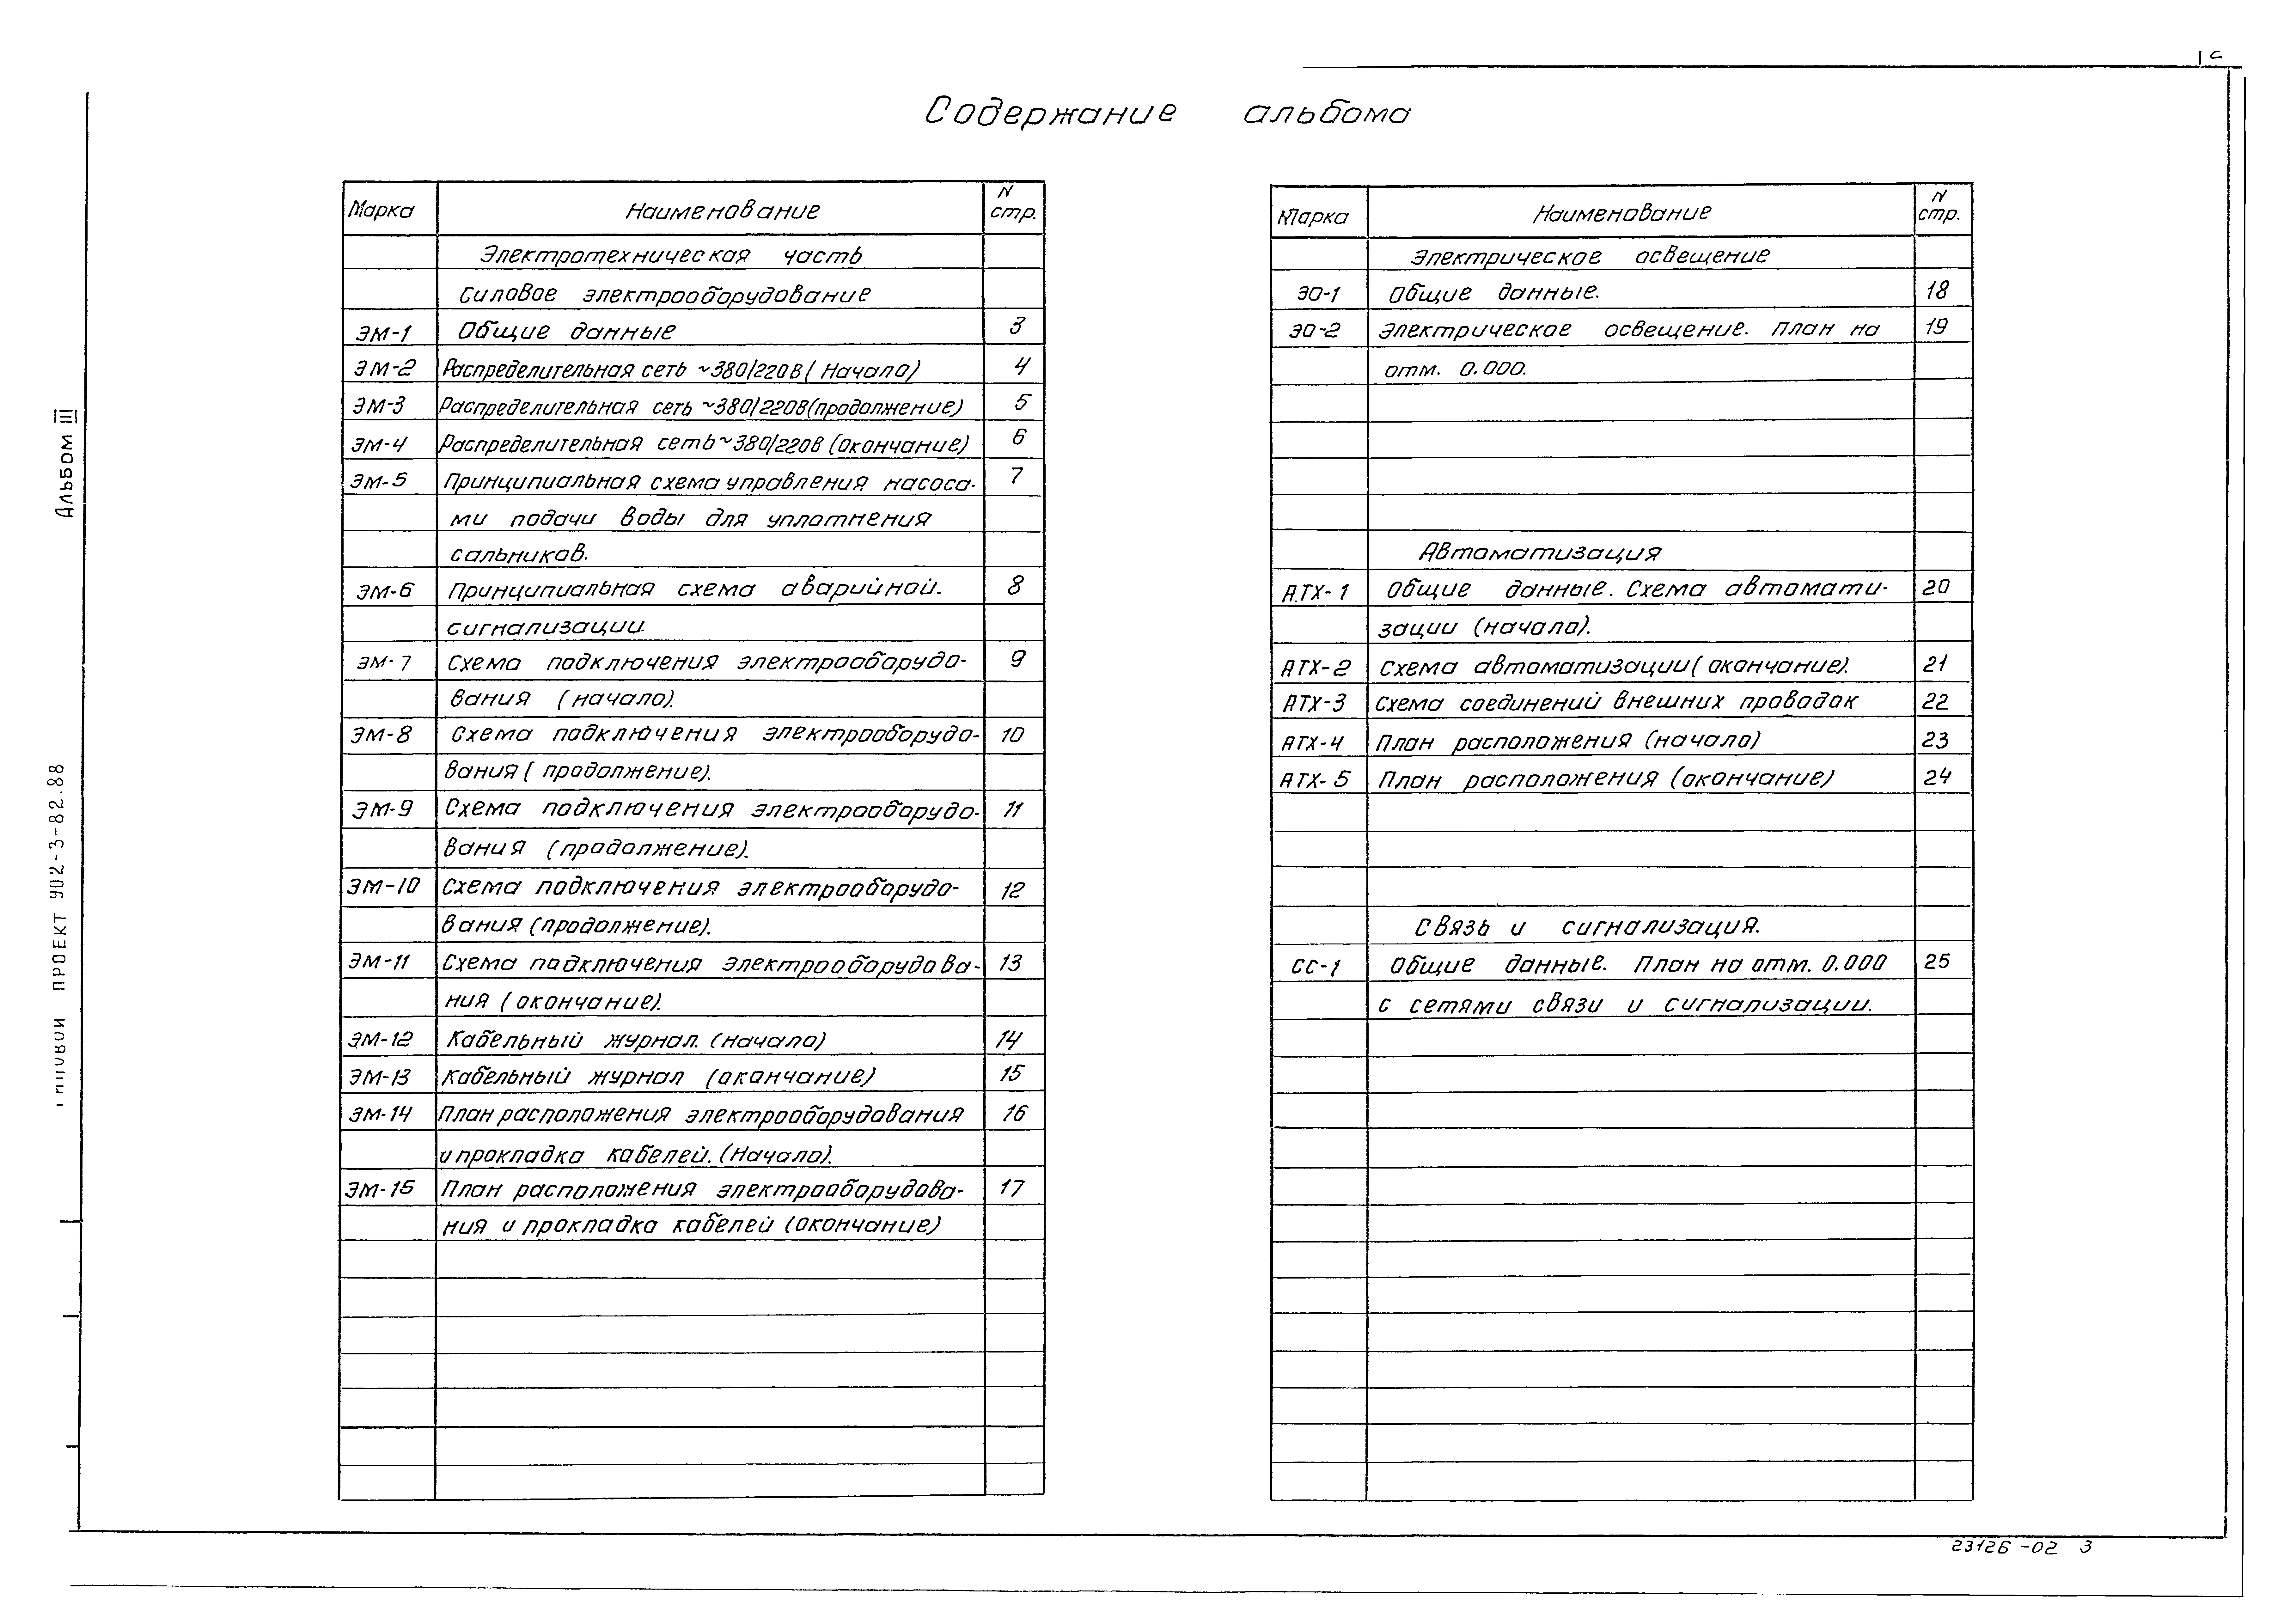 Содержание альбома
Марка Наименование N стр.
Электротехническая часть
Силовое электрооборудование
ЭМ-1 Общие данные 3
ЭМ-2 Распределительная сеть ~380/220В (Начало) 4
ЭМ-3 Распределительная сеть ~380/220В (продолжение) 5
ЭМ-4 Распределительная сеть ~380/220В (окончание) 6
ЭМ-5 Принципиальная схема управления насоса- 7
ми подачи воды для уплотнения
сальников.
ЭМ-6 Принципиальная схема аварийной 8
сигнализации.
ЭМ-7 Схема подключения электрооборудо- 9
вания (начало).
ЭМ-8 Схема подключения электрооборудо- 10
вания (продолжение).
ЭМ-9 Схема подключения электрооборудо- 11
вания (продолжение).
ЭМ-10 Схема подключения электрооборудо- 12
вания (продолжение).
ЭМ-11 Схема подключения электрооборудова- 13
ния (окончание).
ЭМ-12 Кабельный журнал. (начало) 14
ЭМ-13 Кабельный журнал (окончание) 15
ЭМ-14 План расположения электрооборудования 16
и прокладка кабелей. (Начало).
ЭМ-15 План расположения электрооборудова- 17
ния и прокладка кабелей (окончание)
Марка Наименование N стр.
Электрическое освещение
ЭО-1 Общие данные. 18
ЭО-2 Электрическое освещение. План на 19
отм. 0.000.
Автоматизация
АТХ-1 Общие данные. Схема автомати- 20
зации (начало).
АТХ-2 Схема автоматизации (окончание). 21
АТХ-3 Схема соединений внешних проводок 22
АТХ-4 План расположения (начало) 23
АТХ-5 План расположения (окончание) 24
Связь и сигнализация.
СС-1 Общие данные. План на отм. 0.000 25
с сетями связи и сигнализации.
Альбом III
ТИПОВОЙ ПРОЕКТ 902-3-82.88
23126-02 3